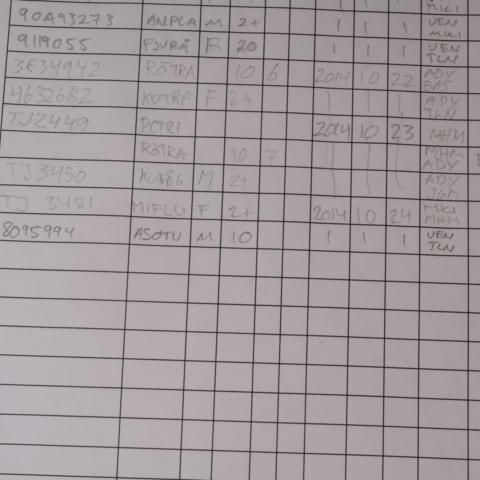 MKI
90A93273 ANPLA M 2+ 1 1 1 VEN MKI
9119055 FJURÅ F 20 1 1 1 VEN TLN
3E34942 ROTRA 10 6 2014 10 22 ADY BAS
4632682 KOTRA F 2+ ADY TLN
TJZ449 PCTRI 2014 10 23 MHM
ROTRA 10 7 MHM ADY
TJ3450 M 2+ ADY
TJ 3481 MIFLU F 2+ 2014 10 24 MKI MHM
8095994 ASOTU M 10 1 1 1 VEN TLN